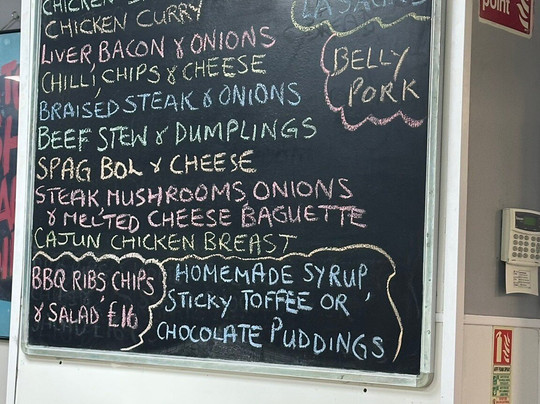 CHICKEN
CHICKEN CURRY
LASAGNE
LIVER, BACON & ONIONS
CHILLI, CHIPS & CHEESE
BELLY
PORK
BRAISED STEAK & ONIONS
BEEF STEW & DUMPLINGS
SPAG BOL & CHEESE
STEAK MUSHROOMS ONIONS
& MELTED CHEESE BAGUETTE
CAJUN CHICKEN BREAST
BBQ RIBS CHIPS
& SALAD £16
HOMEMADE SYRUP,
STICKY TOFFEE OR
CHOCOLATE PUDDINGS
point